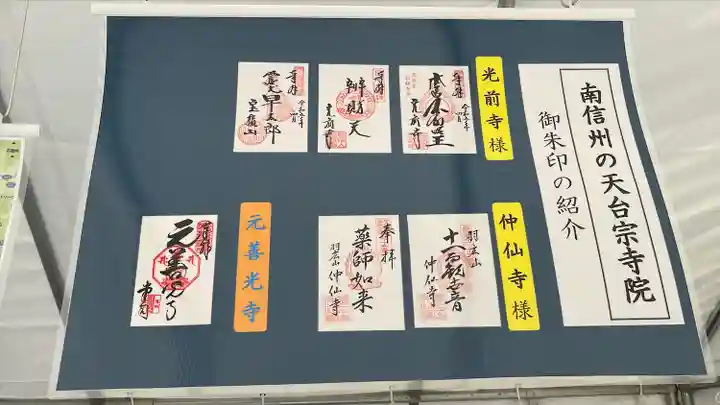 南信州の天台宗寺院
御朱印の紹介
光前寺様
奉拝
光前寺
奉拝
辨財天
光前寺
奉拝
霊犬早太郎
宝積山
仲仙寺様
羽広山
十一面観世音
仲仙寺
奉拝
薬師如来
羽広山 仲仙寺
元善光寺
元善光寺